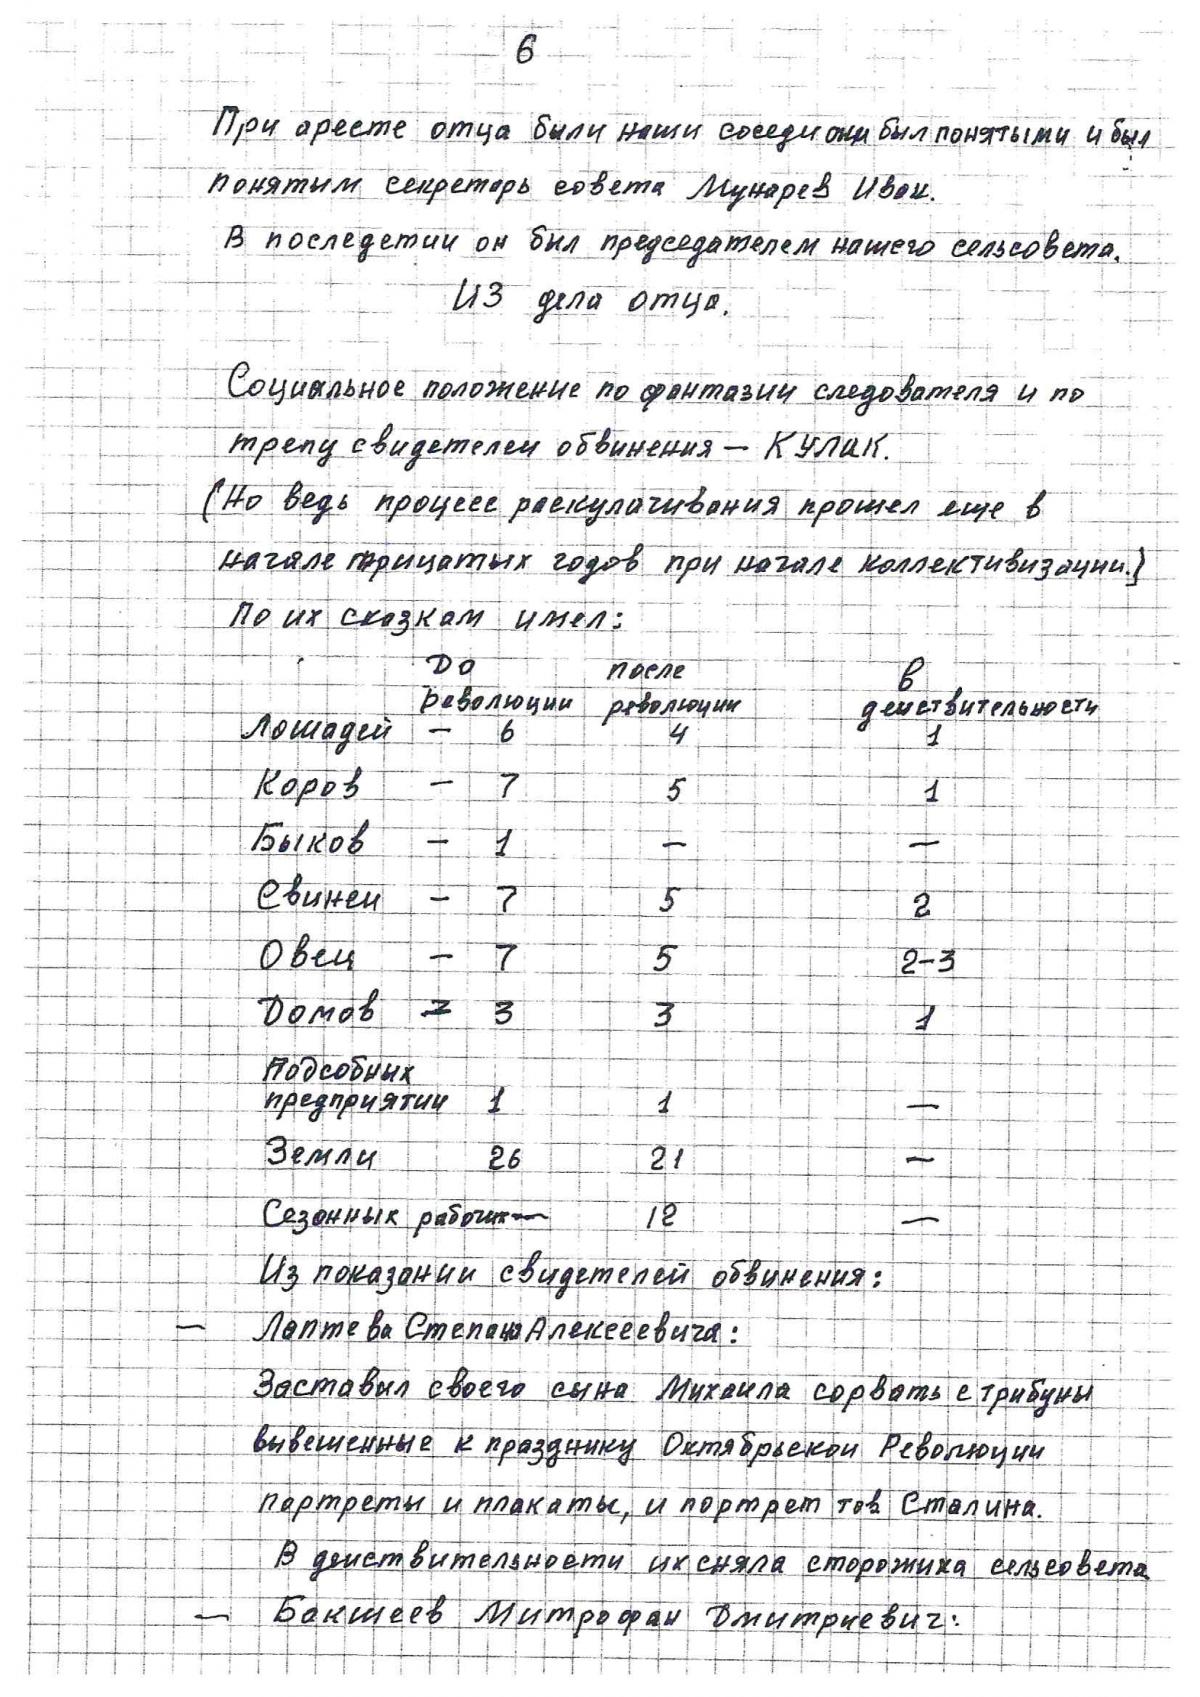 6
При аресте отца были наши соседи они был понятыми и был
понятым секретарь совета Мунарев Иван.
В последетии он был председателем нашего сельсовета.
ИЗ дела отца.
Социальное положение по фантазии следователя и по
трепу свидетелей обвинения — КУЛАК.
(Но ведь процесс раскулачивания прошел еще в
начале трицатых годов при начале коллективизации.)
По их сказкам имел:
До после В
революции революции действительности
Лошадей — 6 4 1
Коров — 7 5 1
Быков — 1 — —
Свиней — 7 5 2
Овец — 7 5 2-3
Домов — 3 3 1
Подсобных
предприятии 1 1 —
Земли 26 21 —
Сезонных рабочих — 12 —
Из показании свидетелей обвинения:
— Лаптева Степана Алексеевича:
Заставил своего сына Михаила сорвать с трибуны
вывешенные к празднику Октябрьской Революции
партреты и плакаты, и портрет тов. Сталина.
В действительности их сняла сторожиха сельсовета
— Бакшеев Митрофан Дмитриевич: